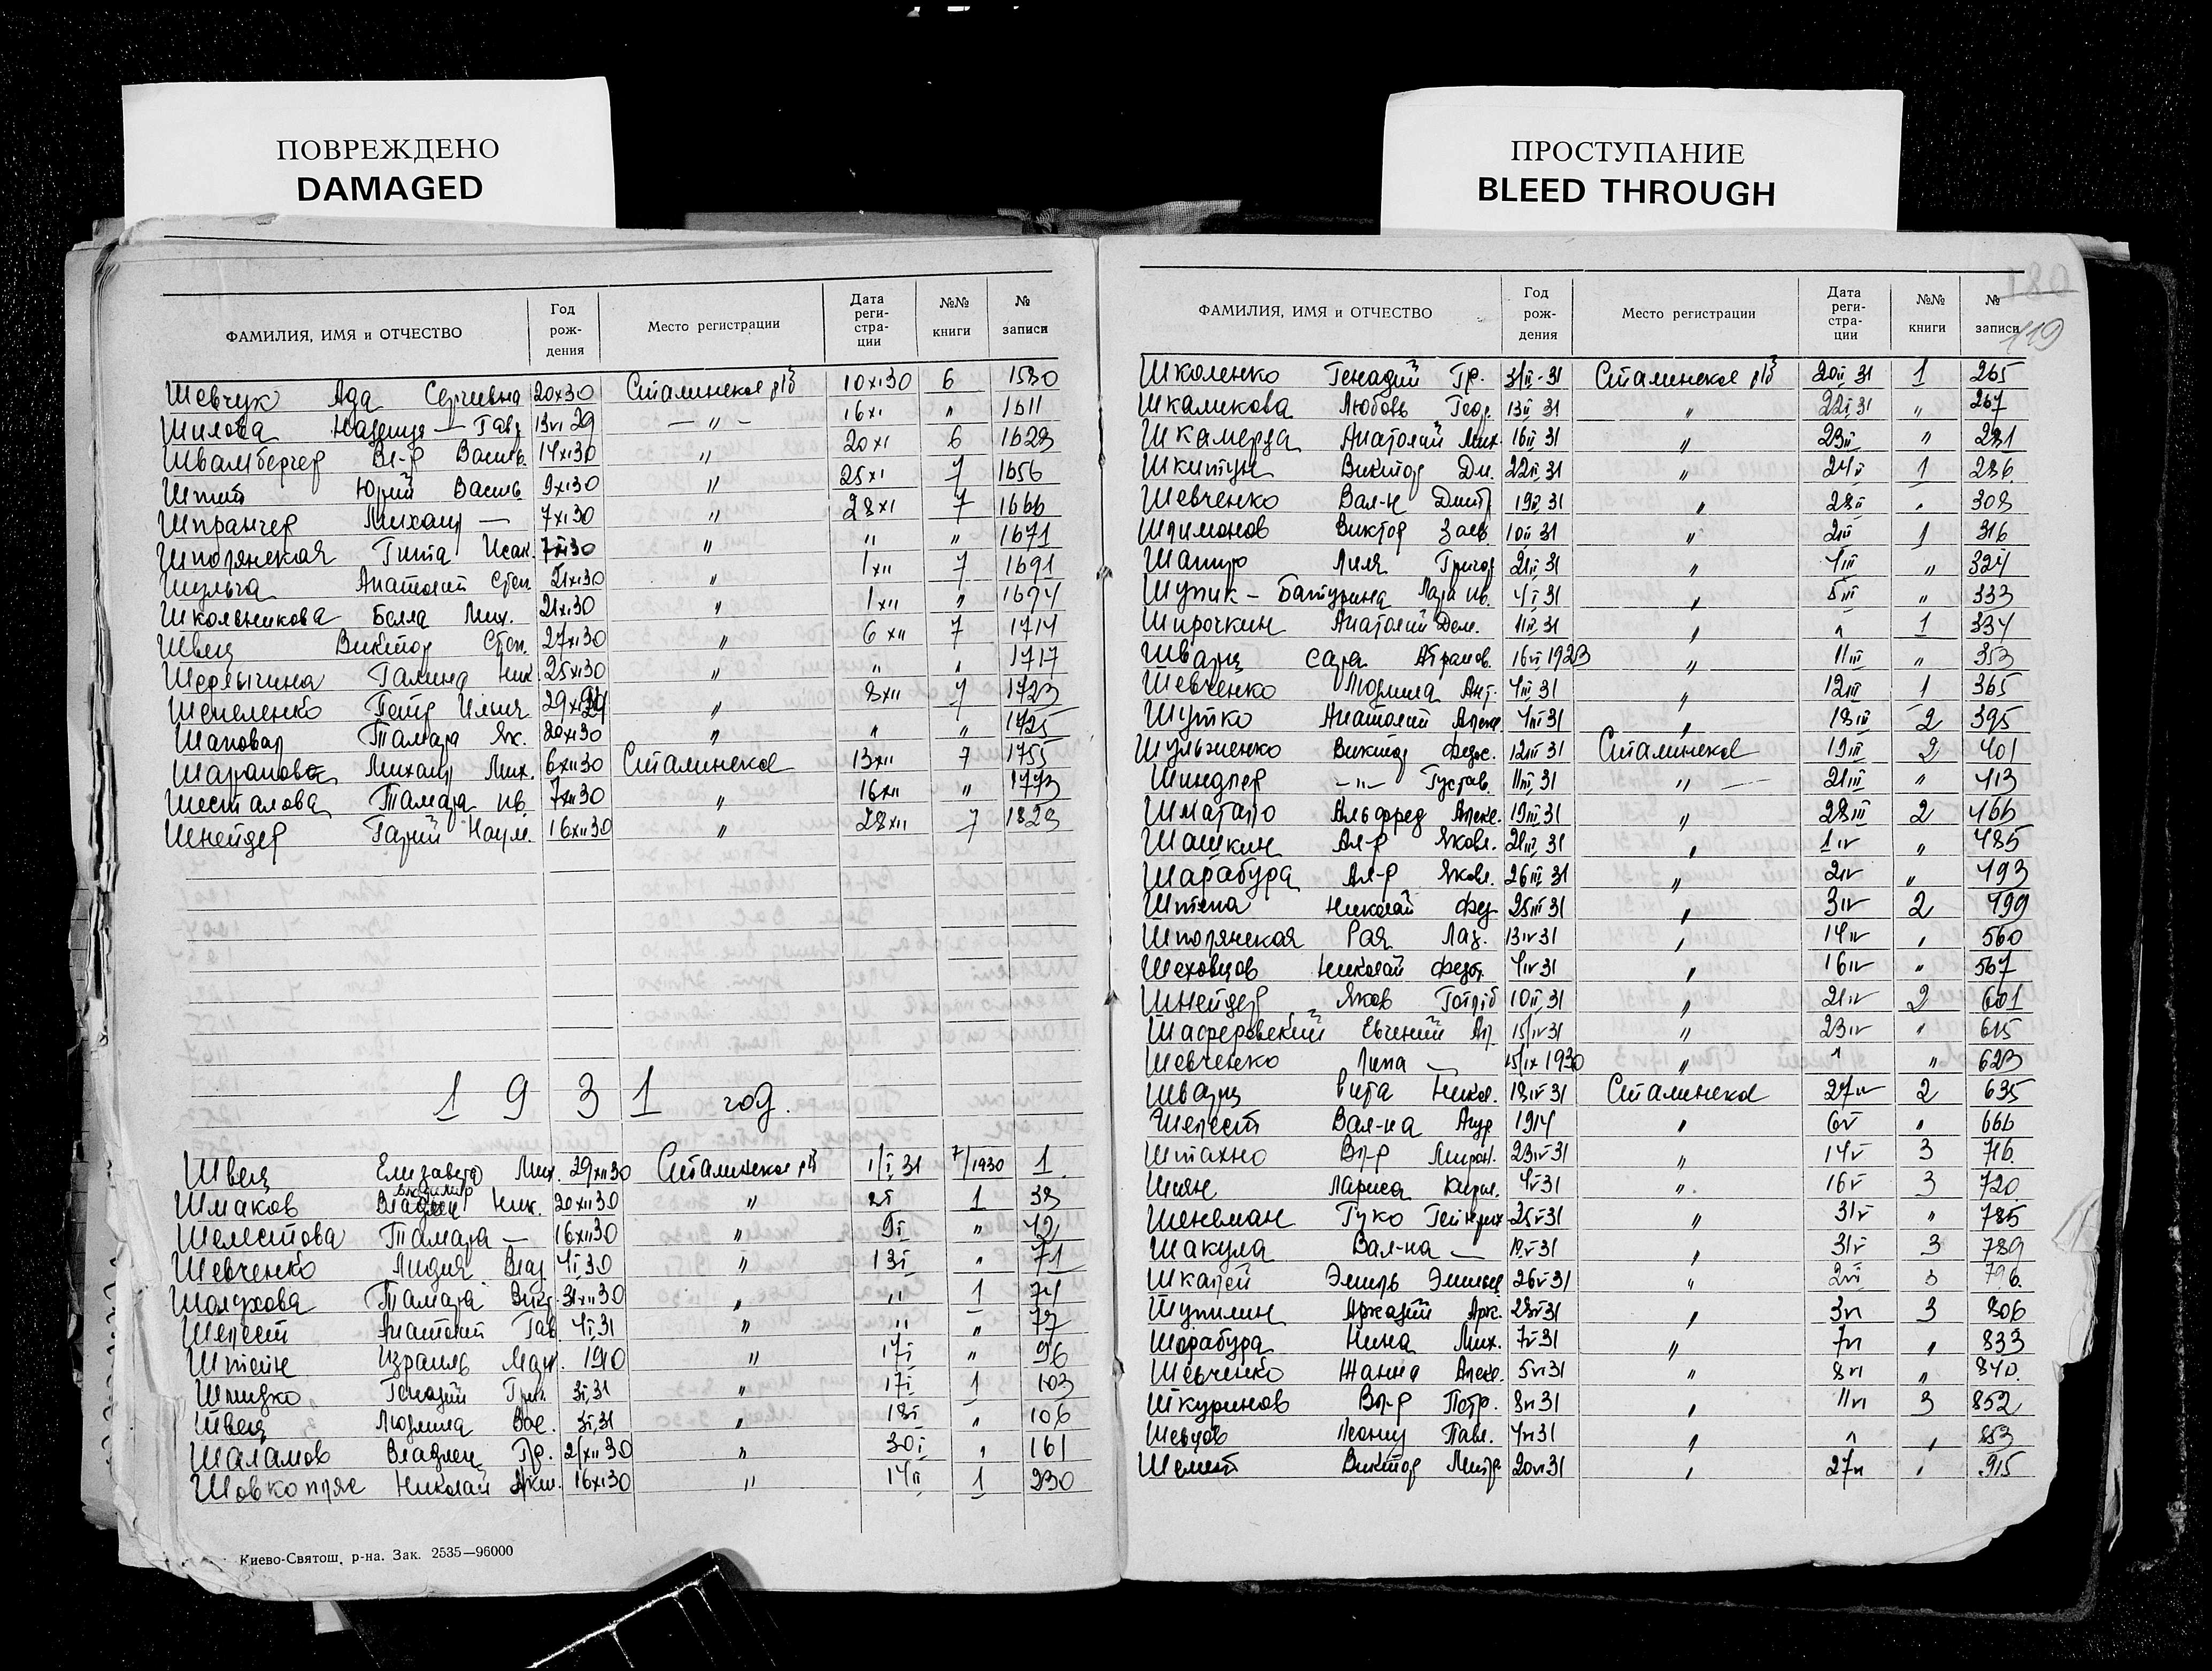 ПОВРЕЖДЕНО
DAMAGED
ПРОСТУПАНИЕ
BLEED THROUGH
ФАМИЛИЯ, ИМЯ и ОТЧЕСТВО Год рож- дения Место регистрации Дата реги- стра- ции №№ книги № записи
Шевчук Ада Сергиевна 20 XI 30 10 XI 30 6 1530
Шилова — Гавр 29 — " — 16 XI " 1611
Швамбергер Вл-р Василь. 14 XI 30 " 20 XI 6 1623
Юрий Василь 9 XI 30 " 25 XI 7 1656
Шпрангер Михаил — 7 XI 30 " 28 XI 7 1666
Шполянская Гита Исак. 30 " " " 1671
Шульга Анатолий Степ. 21 XI 30 " 1 XII 7 1691
Школьникова Белла Мих. 21 XI 30 " 1 XII " 1694
Швец Виктор Степ. 27 XI 30 " 6 XII 7 1714
Галина Ник. 25 XI 30 " " " 1717
Шепеленко Петр Илич " 8 XII 7 1723
Шаповал Тамара Як. 20 XI 30 " " " 1725
Шарапова Михаил Мих. 6 XII 30 Сталинское 13 XII 7 1755
Шесталова Тамара Ив. 7 XII 30 " 16 XII " 1773
Шнейдер Гарий Наум. 16 XII 30 " 28 XII 7 1829
1931 год.
Швец Елизавета Мих. 29 XII 30 1/I 31 7/1930 1
Шмаков Владимир Ник. 20 XII 30 " 1 33
Шелестова Тамара — 16 XII 30 " 9 I " 42
Шевченко Лидия Влад. 4 I 30 " 13 I " 71
Шолухова Тамара Викт. 31 XII 30 " " 1 74
Шелест Анатолий Гав. 4 I 31 " " " 77
Штейн Израиль 1910 " 17 I " 96
Генадий Григ. 3 I 31 " 17 I 1 103
Швец Людмила Вас. 3 I 31 " 18 I " 106
Шаламов Владлен Гр. 21 XII 30 " 30 I " 161
Шовкопляс Николай Аким. 16 XI 30 " 14 II 1 230
Киево-Святош. р-на. Зак. 2535—96000
180
119
ФАМИЛИЯ, ИМЯ и ОТЧЕСТВО Год рож- дения Место регистрации Дата реги- стра- ции №№ книги № записи
Школенко Генадий Гр. 31 20 II 31 1 265
Шкаликова Любовь Геор. 13 II 31 " 22 II 31 " 267
Шкамерда Анатолий Мих. 16 II 31 " 23 II " 281
Шкитун Виктор Дм. 22 II 31 " 24 II 1 286
Шевченко Вал-н Дмитр 19 II 31 " 28 II " 308
Виктор 10 II 31 " 2 III 1 316
Шапиро Лиля Григор 21 II 31 " 4 III " 324
Шупик - Батурина Лара Ив. 4 I 31 " 5 III " 333
Широчкин Анатолий Дем. 11 II 31 " " 1 334
Шварц Сара Абрамов. 1923 " 11 III " 353
Шевченко Людмила Ант. 4 III 31 " 12 III 1 365
Шутко Анатолий Алекс. 4 III 31 " 18 III 2 395
Шульженко Виктор Федос. 12 III 31 Сталинское 19 III 2 401
Шиндлер -"- Густав. 11 III 31 " 21 III " 413
Альфред Алекс. 19 III 31 " 28 III 2 466
Шашкин Ал-р Яковл. 21 III 31 " 1 IV " 485
Шарабура Ал-р Яковл. 26 III 31 " 2 IV " 493
Штепа Николай Фед. 25 III 31 " 3 IV 2 499
Шполянская Рая Лаз. 13 IV 31 " 14 IV " 560
Шеховцов Николай Федот. 4 IV 31 " 16 IV " 567
Шнейдер Яков Готлиб 10 IV 31 " 21 IV 2 601
Евгений 15/IV 31 " 23 IV " 615
Шевченко Лина — 15/IX 1930 " " " 623
Шварц Вита Никол. 18 IV 31 Сталинское 27 IV 2 635
Шелест Вал-на Андр 1914 " 6 V " 666
Штахно Вл-р Мирон. 23 IV 31 " 14 V 3 716.
Шиян Лариса Кирил. 4 V 31 " 16 V 3 720.
Шенвман Гуко Гейнрих 25 V 31 " 31 V " 785
Шакула Вал-на — 19 V 31 " 31 V 3 789
Эмиль Эмильев 26 V 31 " 2 VI 3 796.
Шупилин Аркадий Арк. 28 V 31 " 3 VI 3 806
Шарабура Нина Мих. 7 V 31 " 7 VI " 833
Шевченко Жанна Алекс. 5 VI 31 " 8 VI " 840.
Шкуринов Вл-р Петр. 8 VI 31 " 11 VI 3 852
Шевцов Леонид Павл. 4 VI 31 " " " 853
Шелест Виктор Митр. 20 VI 31 " 27 VI " 915